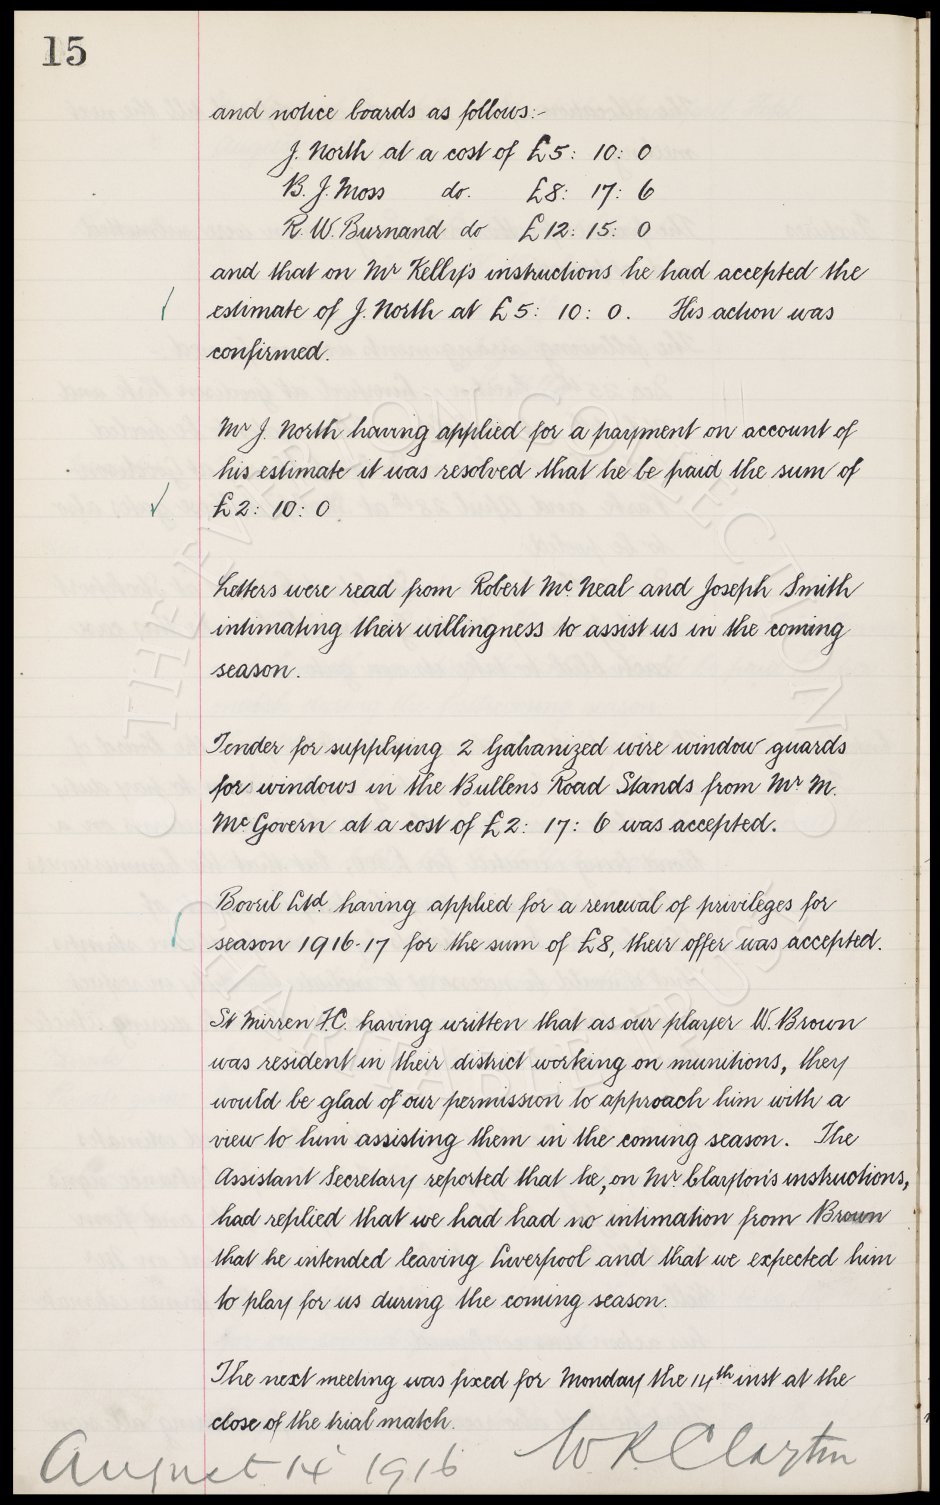 15
and notice boards as follows:-
J. North at a cost of £5: 10: 0
B. J. Moss do. £8: 17: 6
R. W. Burnand do £12: 15: 0
and that on Mr Kelly's instructions he had accepted the
estimate of J. North at £5: 10: 0. His action was
confirmed.
Mr J. North having applied for a payment on account of
his estimate it was resolved that he be paid the sum of
£2: 10: 0
Letters were read from Robert Mc. Neal and Joseph Smith
intimating their willingness to assist us in the coming
season.
Tender for supplying 2 Galvanized wire window guards
for windows in the Bullens Road Stands from Mr M.
McGovern at a cost of £2: 17: 6 was accepted.
Bovril Ltd. having applied for a renewal of privileges for
season 1916-17 for the sum of £8, their offer was accepted.
St Mirren F.C. having written that as our player W. Brown
was resident in their district working on munitions, they
would be glad of our permission to approach him with a
view to him assisting them in the coming season. The
Assistant Secretary reported that he, on Mr. Clayton's instructions,
had replied that we had had no intimation from Brown
that he intended leaving Liverpool and that we expected him
to play for us during the coming season.
The next meeting was fixed for Monday the 14th inst at the
close of the trial match.
August 14 1916 W R Clayton